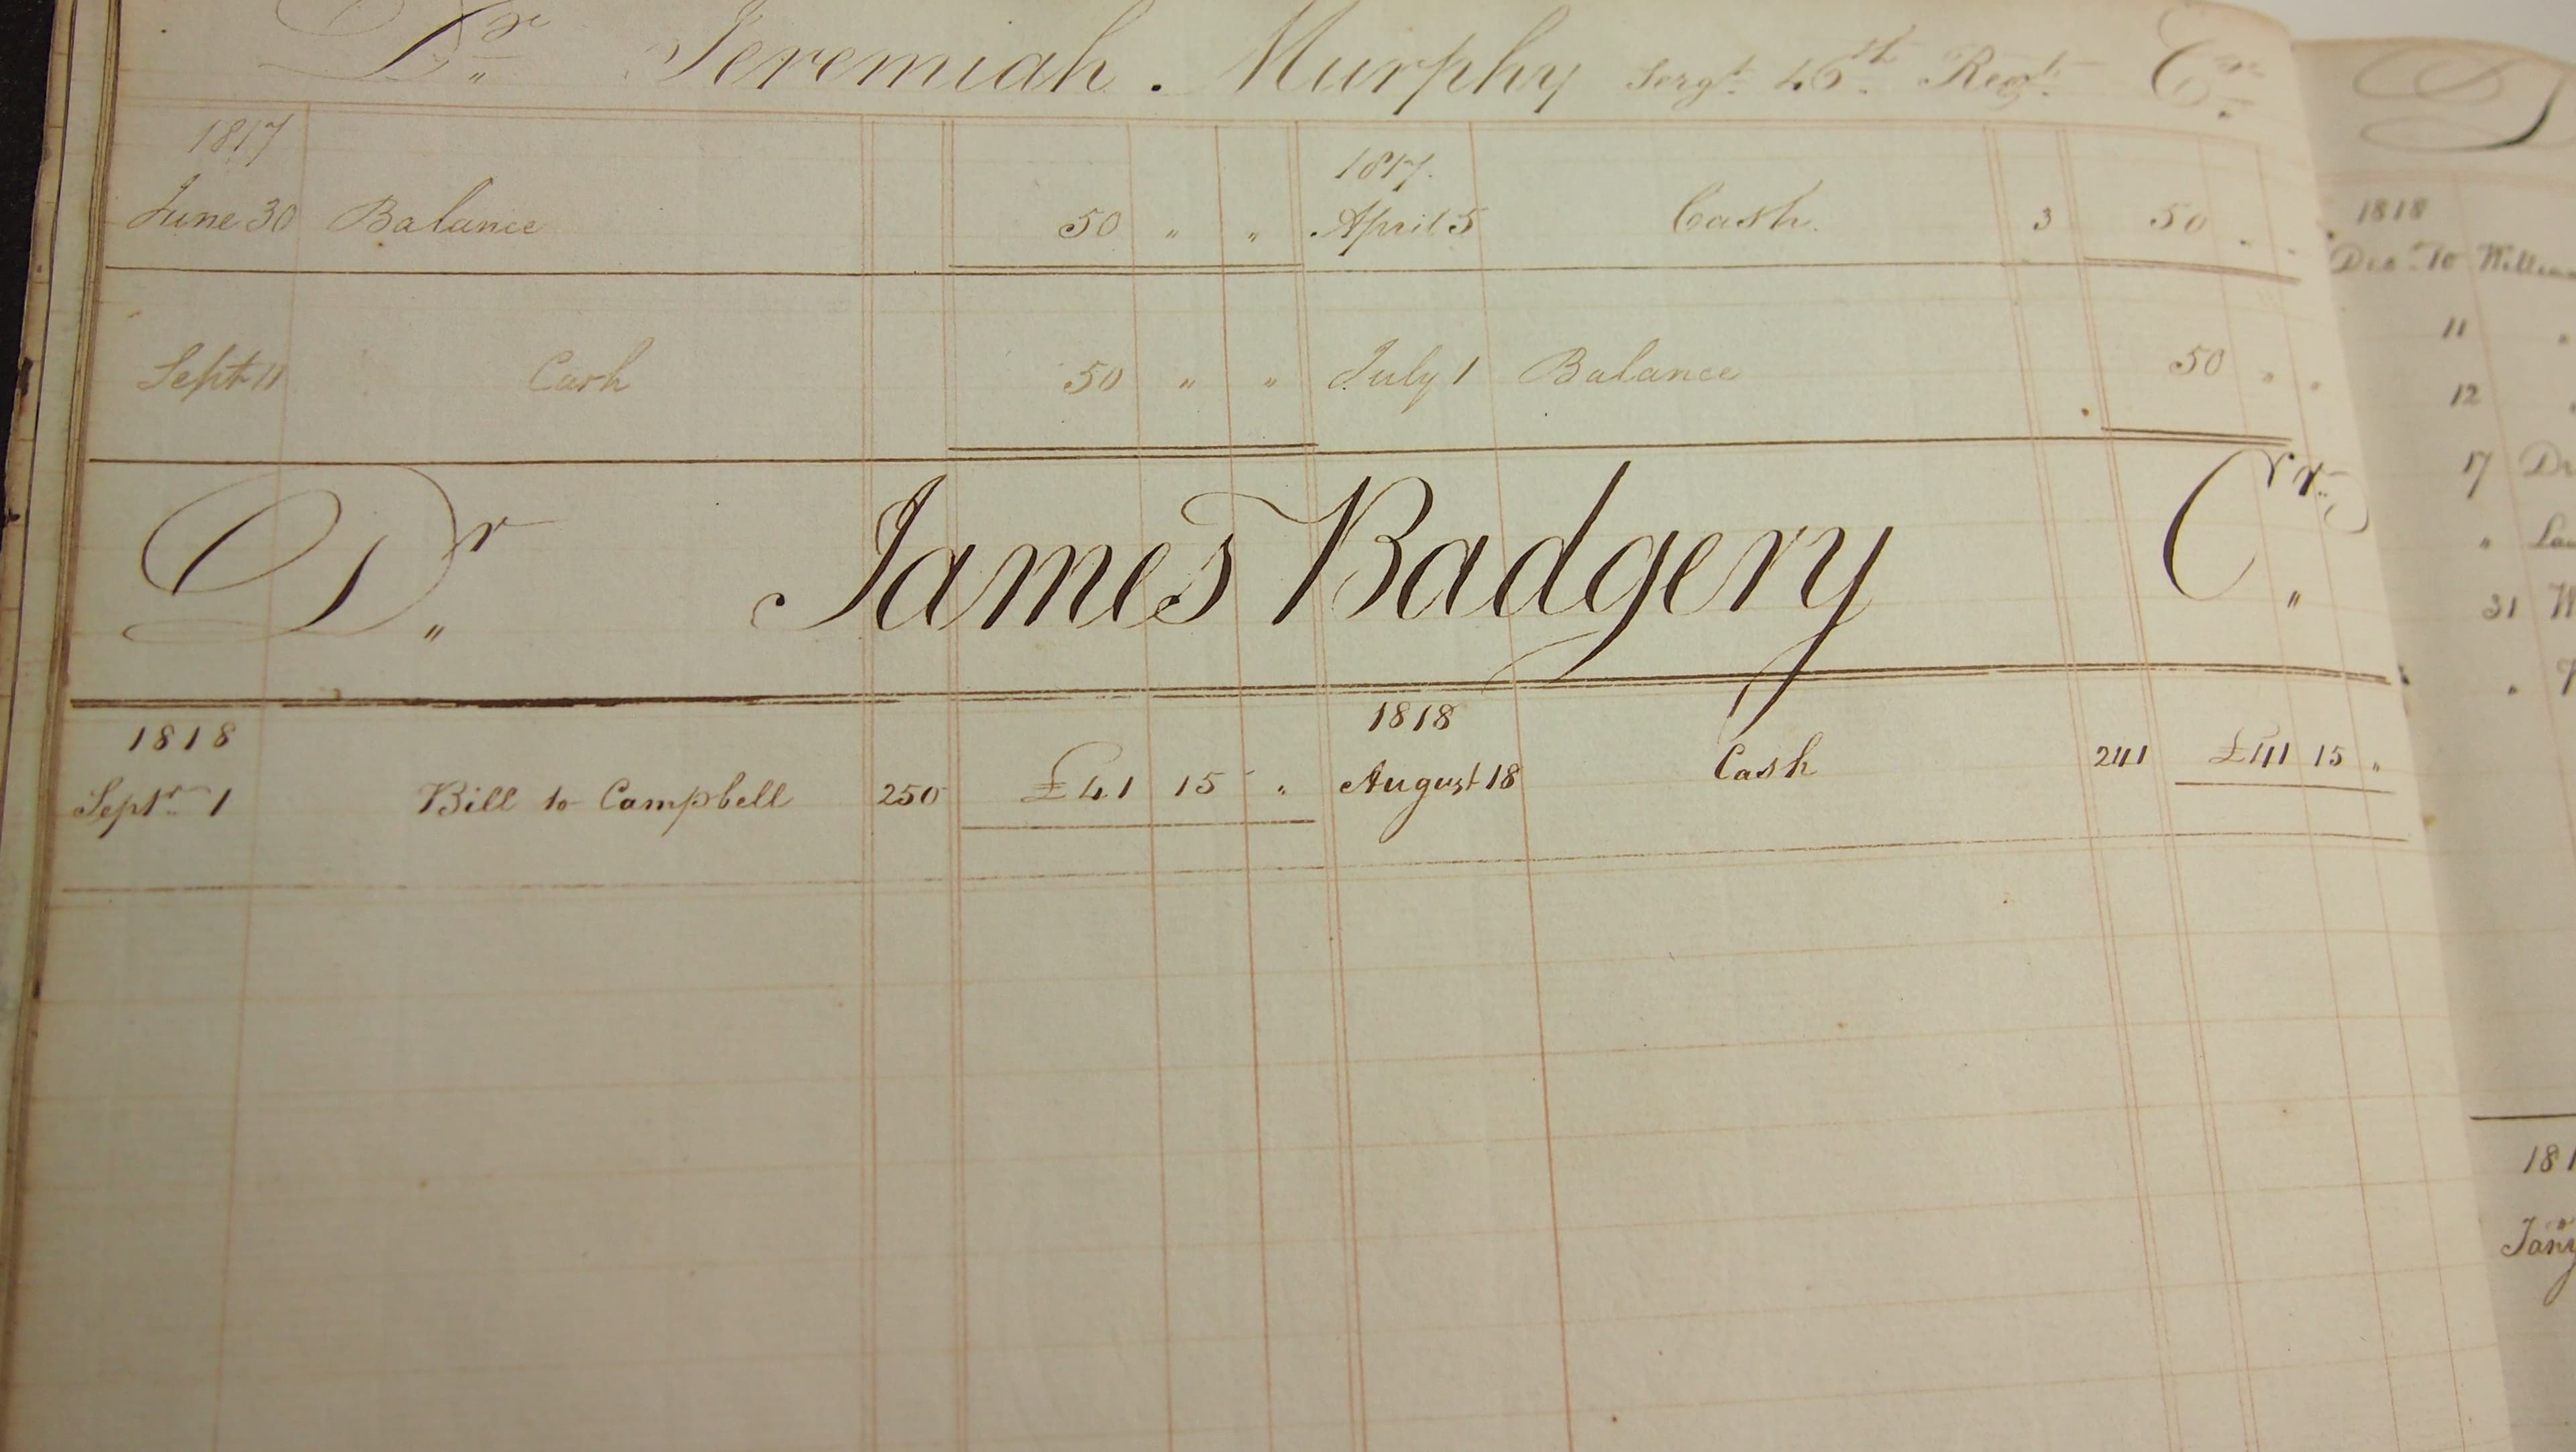 Dr Jeremiah . Murphy Sergt. 46th. Regt. Cr.
1817 1817.
June 30 Balance 50 " " April 5 Cash. 3 50 . .
Sept 11 Cash 50 " " July 1 Balance 50 " "
Dr James Badgery Cr
1818 1818
Septr. 1 Bill to Campbell 250 £41 15 " August 18 Cash 241 £41 15 "
D
1818
Decr. 10
11
12
17
"
31
"